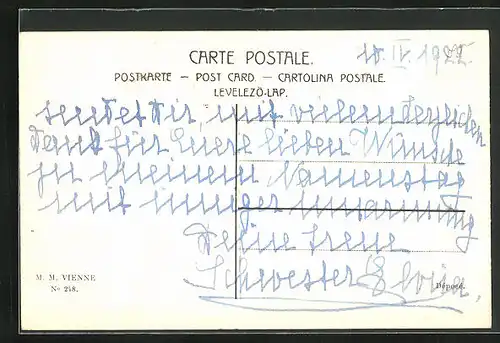 CARTE POSTALE.
10. IV. 1922.
POSTKARTE — POST CARD. — CARTOLINA POSTALE.
LEVELEZŐ-LAP.
sendet Dir, mit vielem herzlichen
Dank für Eure lieben Wünsche
zu meinem Namenstag
mit inniger Umarmung
Deine treue
Schwester
M. M. VIENNE
Nº 248.
Déposé.